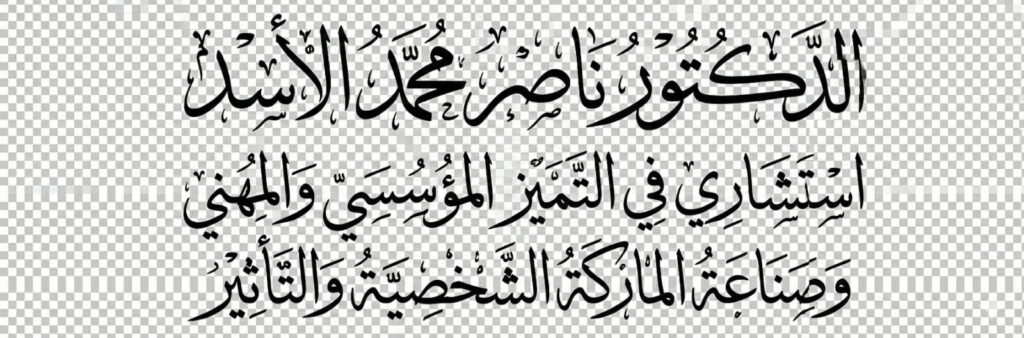 الدَّكْتُوْرُ نَاصِرْ مُحَمَّدُ الأَسِدْ
اسْتِشَارِي فِي التَّمَيْز المُؤسُسِيّ وَالمِهَني
وَصِنَاعَةُ المْارْكَةُ الشَّخْصِيَّةُ وَالتَّأثِيْرُ